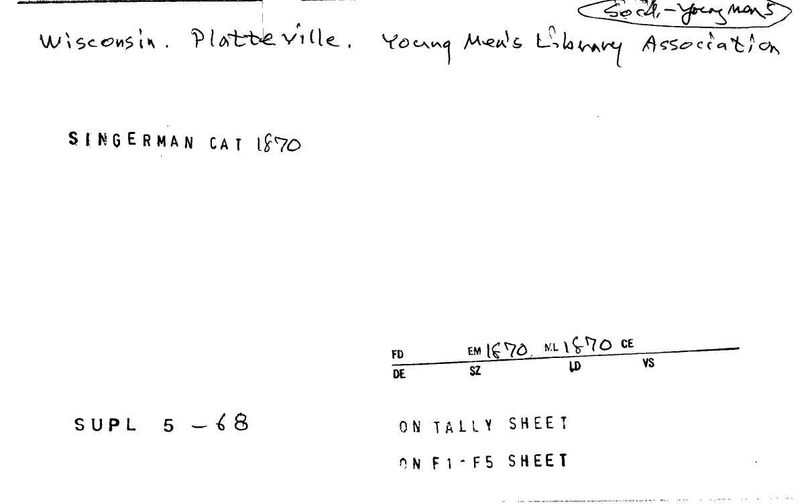 Social - Young Men's
Wisconsin. Platteville. Young Men's Library Association
SINGERMAN CAT 1870
FD EM 1870 NL 1870 CE
DE SZ LD VS
SUPL 5 - 68
ON TALLY SHEET
ON F1-F5 SHEET